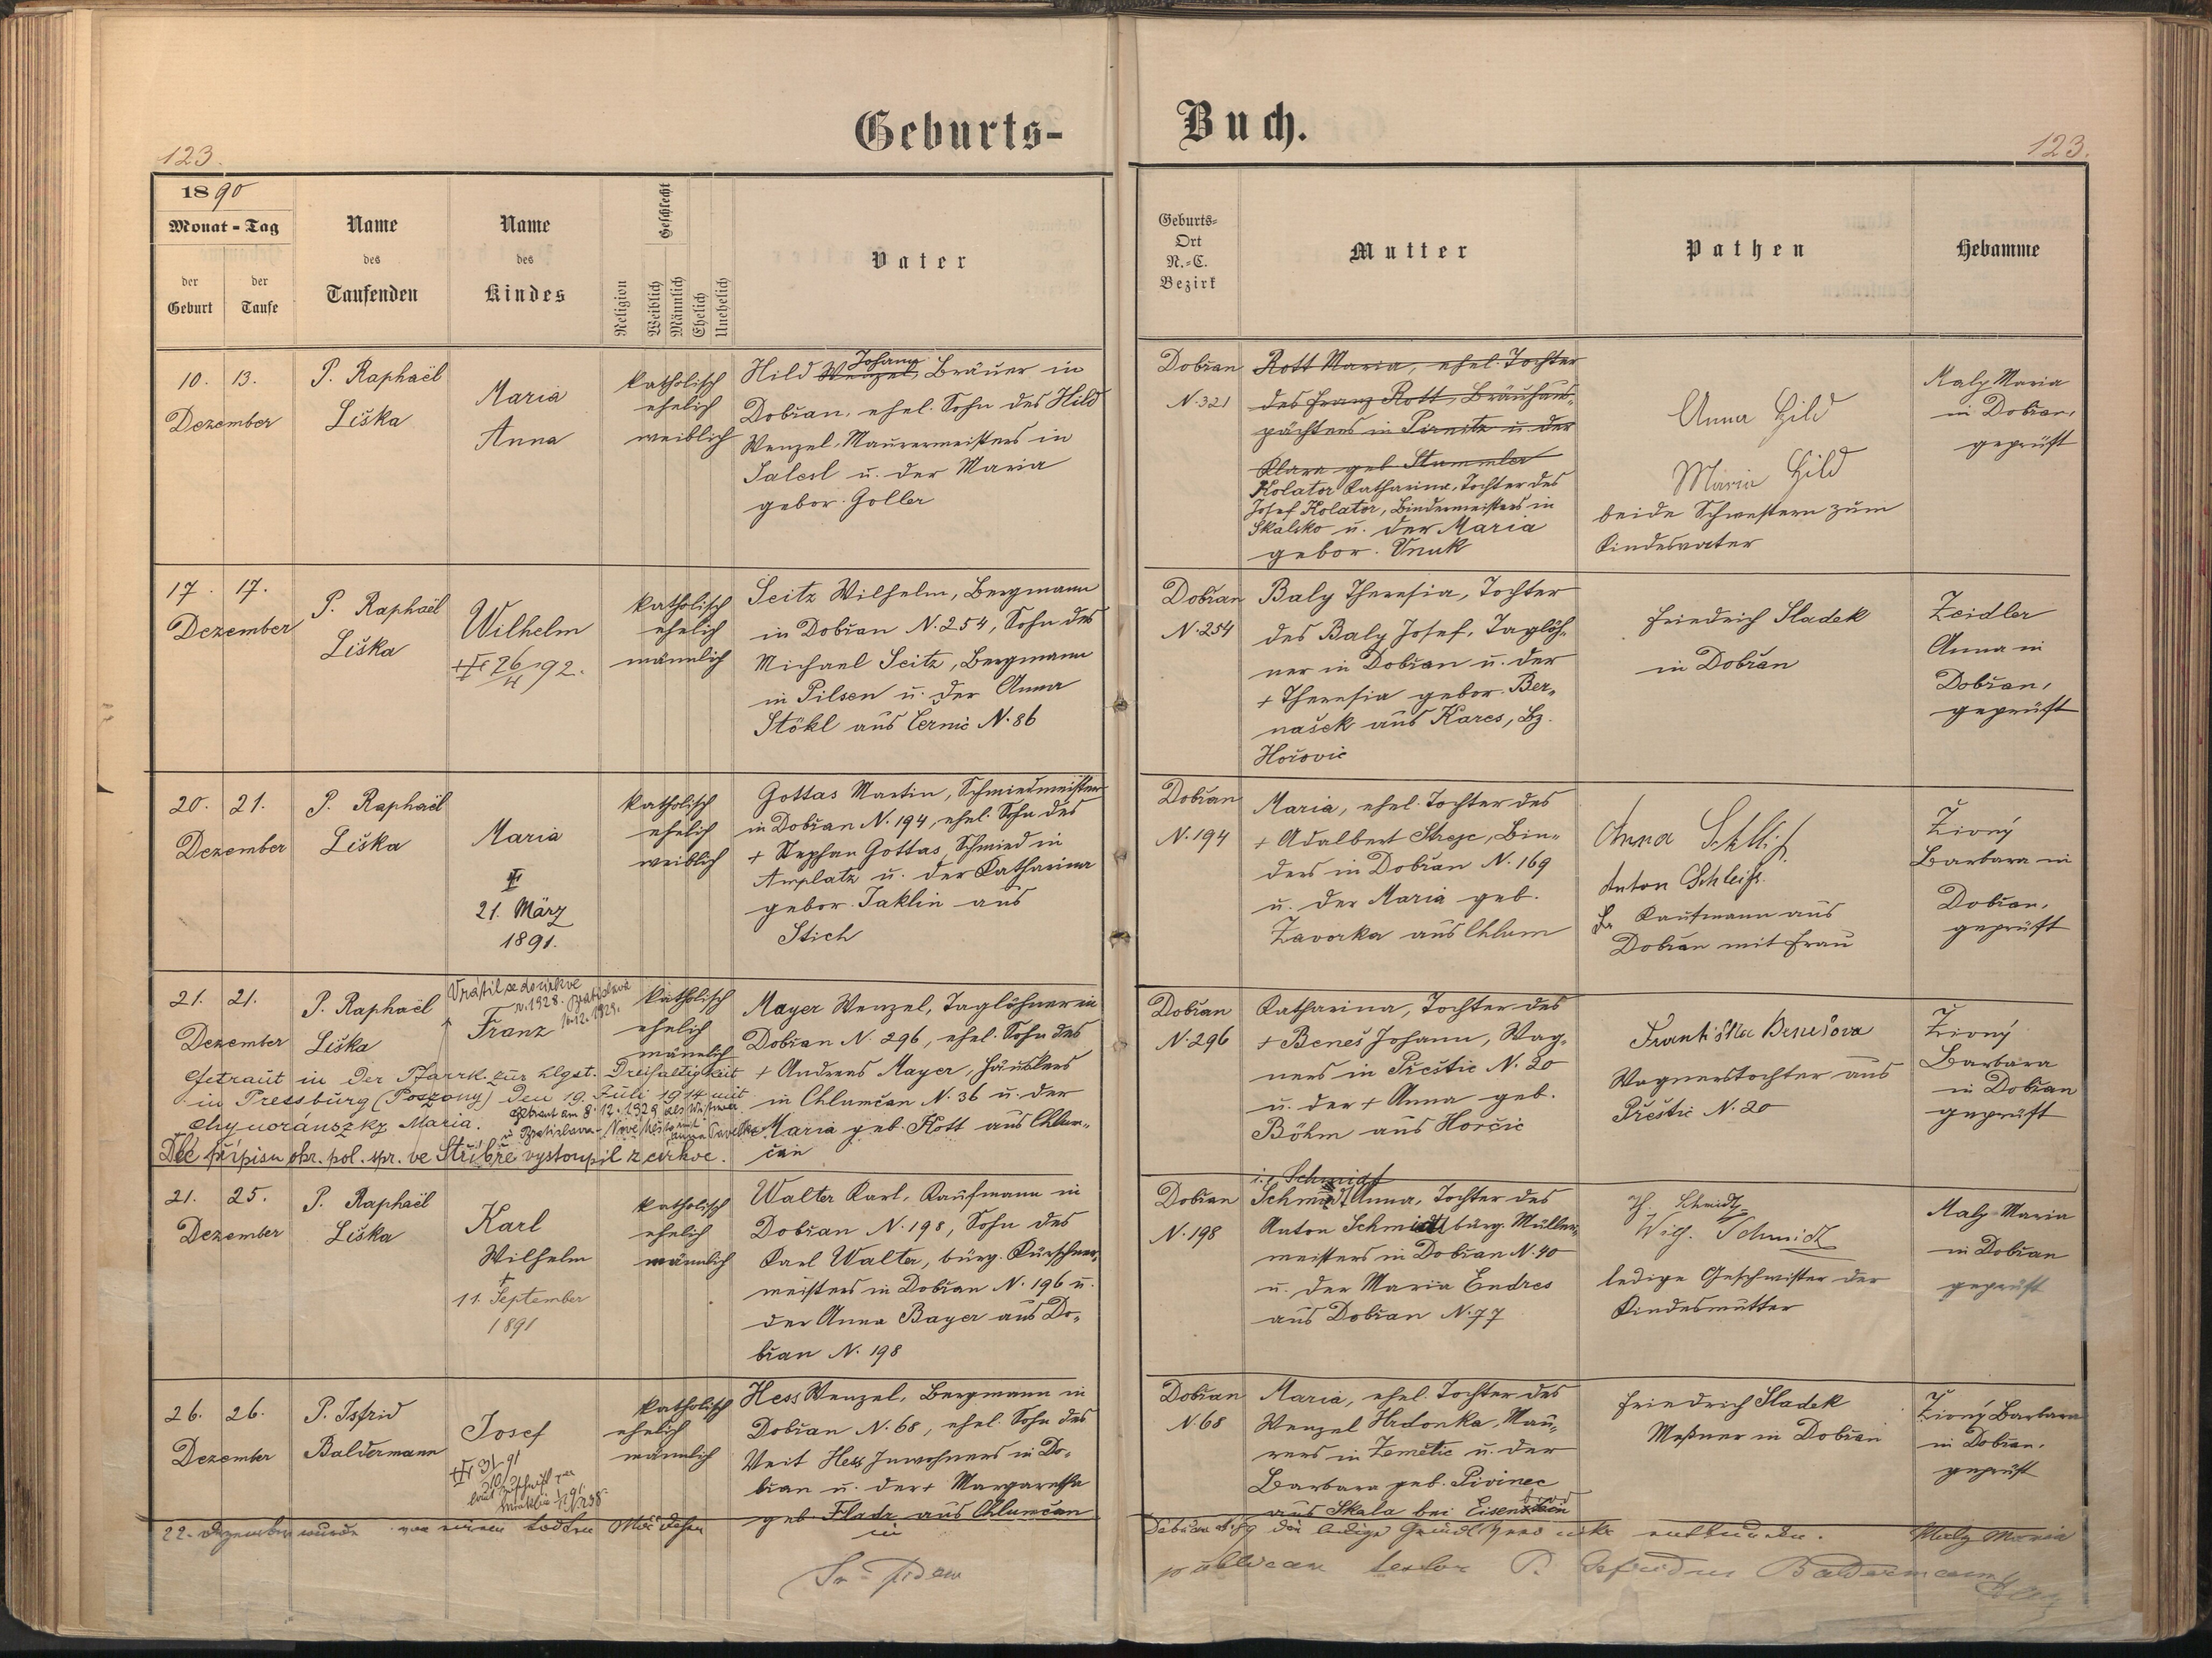 Geburts-
Buch.
123.
123.
1890
Monat - Tag
der Geburt
der Taufe
Name des Taufenden
Name des Kindes
Religion
Geschlecht
Weiblich
Männlich
Ehelich
Unehelich
Vater
Geburts-Ort N.-C. Bezirk
Mutter
Pathen
Hebamme
10. 13.
Dezember
P. Raphaël
Liška
Maria
Anna
katholisch
ehelich
weiblich
Johann
Hild Wenzel, Bräuer in
Dobřan, ehel. Sohn des Hild
Wenzel, Maurermeisters in
Salesl u. der Maria
gebor. Goller
Dobřan
N. 321
Rott Maria, ehel. Tochter
des Franz Rott, Bräuhaus-
pächters in Pirnitz u. der
Klara geb. Stammler
Kolator Katharina, Tochter des
Josef Kolator, Bindermeisters in
Skalsko u. der Maria
gebor. Vnuk
Anna Hild
Maria Hild
beide Schwestern zum
Kindesvater
Maly Maria
in Dobřan,
geprüft
17. 17.
Dezember
P. Raphaël
Liška
Wilhelm
26/4 92.
katholisch
ehelich
männlich
Seitz Wilhelm, Bergmann
in Dobřan N. 254, Sohn des
Michael Seitz, Bergmann
in Pilsen u. der Anna
Stökl aus Černic N. 86
Dobřan
N. 254
Baly Theresia, Tochter
des Baly Josef, Taglöh-
ner in Dobřan u. der
+ Theresia gebor. Ber-
našek aus Kares, Bz.
Hořovic
Friedrich Sladek
in Dobřan
Zeidler
Anna in
Dobřan,
geprüft
20. 21.
Dezember
P. Raphaël
Liška
Maria
21. März
1891.
katholisch
ehelich
weiblich
Gottas Martin, Schmiedmeister
in Dobřan N. 194, ehel. Sohn des
+ Stephan Gottas, Schmied in
Amplatz u. der Katharina
gebor. Jaklin aus
Stich
Dobřan
N. 194
Maria, ehel. Tochter des
+ Adalbert Strejc, Bin-
ders in Dobřan N. 169
u. der Maria geb.
Zavorka aus Chlum
Anna
Anton Schleiß
Kaufmann aus
Dobřan mit Frau
Živný
Barbara in
Dobřan,
geprüft
21. 21.
Dezember
P. Raphaël
Liška
Vrátil se do církve
r. 1928. Bratislava
10.12.1929.
Franz
katholisch
ehelich
männlich
Getraut in der Pfarrk. zur hlgst. Dreifaltigkeit
in Pressburg (Poszony) den 19. Juli 1914 mit
Chynoránszky Maria.
Getraut am 8.12.1929 als Witwer
v Bratislava - Nové Město mit
Dle přípisu okr. pol. spr. ve Stříbře vystoupil z církve.
Mayer Wenzel, Taglöhner in
Dobřan N. 296, ehel. Sohn des
+ Andreas Mayer, Häuslers
in Chlumčan N. 36 u. der
Maria geb. Kott aus Chlum-
čan
Dobřan
N. 296
Katharina, Tochter des
+ Beneš Johann, Wag-
ners in Přestic N. 20
u. der + Anna geb.
Böhm aus Horčic
Františka Benešova
Wagnerstochter aus
Přestic N. 20
Živný
Barbara
in Dobřan
geprüft
21. 25.
Dezember
P. Raphaël
Liška
Karl
Wilhelm
+
11. September
1891
katholisch
ehelich
männlich
Walter Karl, Kaufmann in
Dobřan N. 198, Sohn des
Karl Walter, bürg. Kürschner-
meisters in Dobřan N. 196 u.
der Anna Bayer aus Do-
břan N. 198
Dobřan
N. 198
Schmidt
Schmidt Anna, Tochter des
Anton Schmidt bürg. Müller-
meisters in Dobřan N. 40
u. der Maria Endres
aus Dobřan N. 77
Schmidt
Wilh. Schmidt
ledige Geschwister der
Kindesmutter
Maly Maria
in Dobřan
geprüft
26. 26.
Dezember
P. Isfrid
Baldermann
Josef
katholisch
ehelich
männlich
Hess Wenzel, Bergmann in
Dobřan N. 68, ehel. Sohn des
Veit Hess Inwohners in Do-
břan u. der + Margaretha
geb. Fladr aus Chlumčan
Dobřan
N. 68
Maria, ehel. Tochter des
Wenzel Hrdonka, Mau-
rers in Zemětic u. der
Barbara geb. Pivinec
aus Skala bei Eisen
Friedrich Sladek
Meßner in Dobřan
Živný Barbara
in Dobřan,
geprüft
22. Dezember wurde von einem todten Mädchen
in
Dobřan die ledige entbunden.
Maly Maria
In fidem
publicam testor P. Isfridus Baldermann